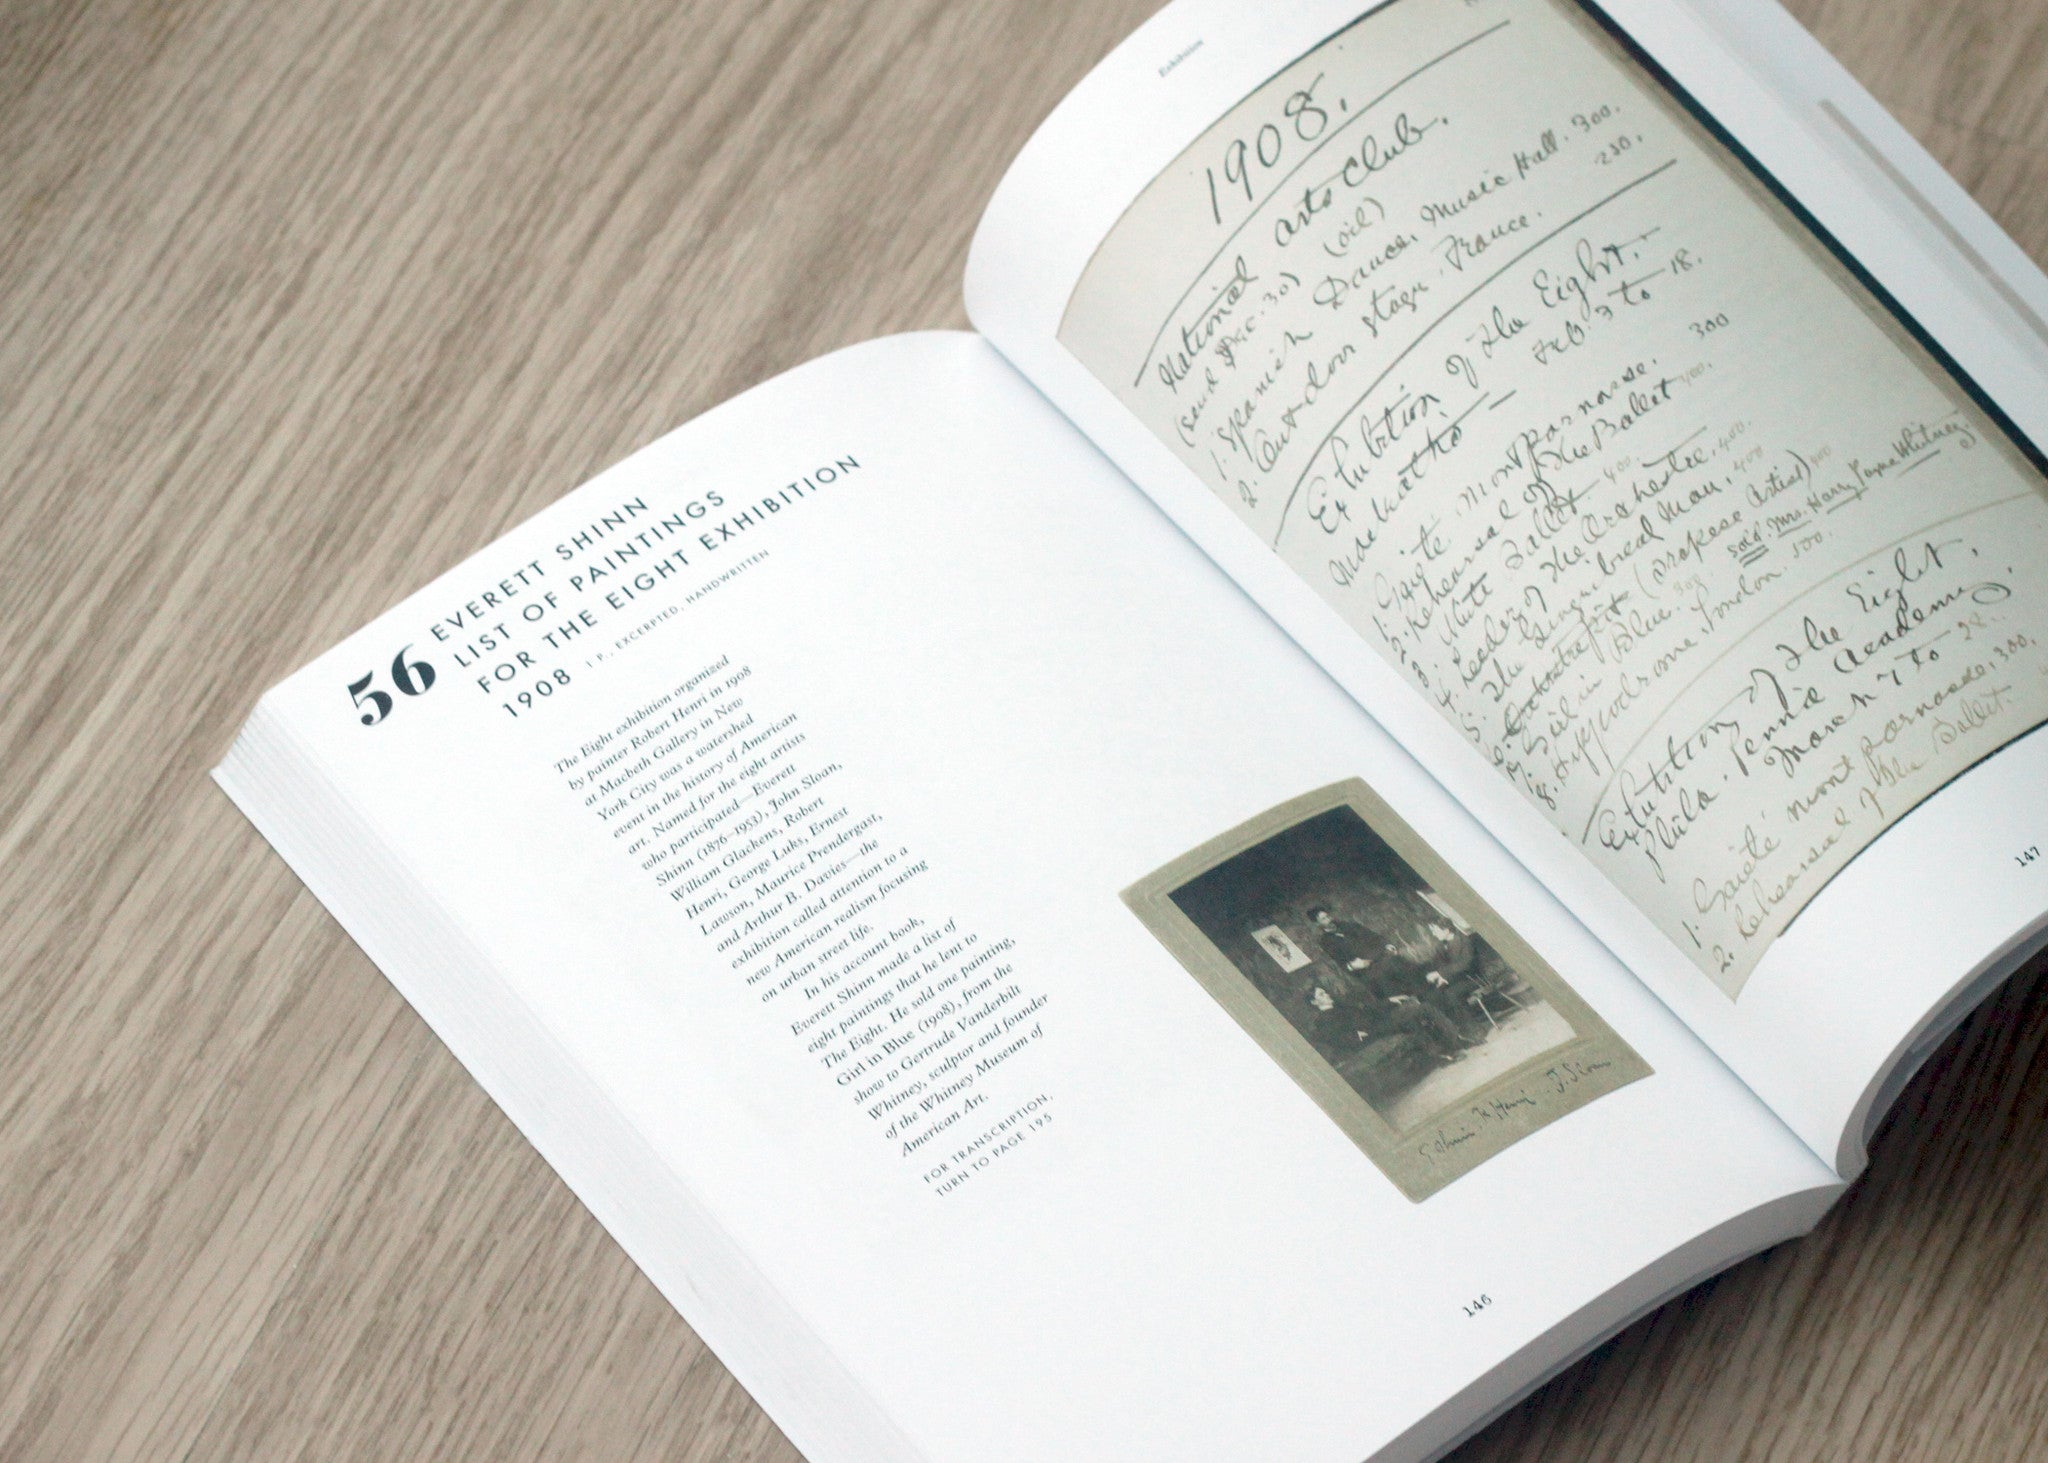 56
EVERETT SHINN
LIST OF PAINTINGS
FOR THE EIGHT EXHIBITION
1908 1 P., EXCERPTED, HANDWRITTEN
The Eight exhibition organized
by painter Robert Henri in 1908
at Macbeth Gallery in New
York City was a watershed
event in the history of American
art. Named for the eight artists
who participated—Everett
Shinn (1876–1953), John Sloan,
William Glackens, Robert
Henri, George Luks, Ernest
Lawson, Maurice Prendergast,
and Arthur B. Davies—the
exhibition called attention to a
new American realism focusing
on urban street life.
In his account book,
Everett Shinn made a list of
eight paintings that he lent to
The Eight. He sold one painting,
Girl in Blue (1908), from the
show to Gertrude Vanderbilt
Whitney, sculptor and founder
of the Whitney Museum of
American Art.
FOR TRANSCRIPTION,
TURN TO PAGE 195
E. Shinn. R. Henri. J. Sloan
146
Exhibition
1908.
National Arts Club.
(send Dec. 30) (oil)
1. Spanish Dance, Music Hall. 300.
2. Outdoor Stage. France. 250.
Exhibition of The Eight.
Macbeths — Feb. 3 to 18.
1. Gaité Montparnasse. 300
2. Rehearsal of the Ballet 400.
3. White Ballet. 400.
4. Leader of the Orchestre. 400.
5. The Gingerbread Man. 400
6. Orchestre Pit (Trapese Artist) 400
7. Girl in Blue. 300. Sold. Mrs. Harry Payne Whitney.
8. Hippodrome, London. 500.
Exhibition of The Eight.
Phila. Penna Academy.
March 7 to 28..
1. Gaité Montparnasse, 300.
2. Rehearsal of the Ballet.
147